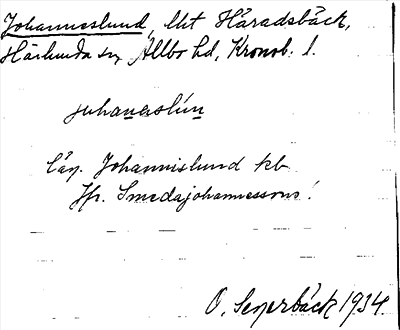 Johanneslund, lht Häradsbäck,
Härlunda sn, Allbo hd, Kronob. l.
juhanaslún
läg. Johannislund kb
Jfr. Smedajohannessons!
O. Senerbäck 1934.